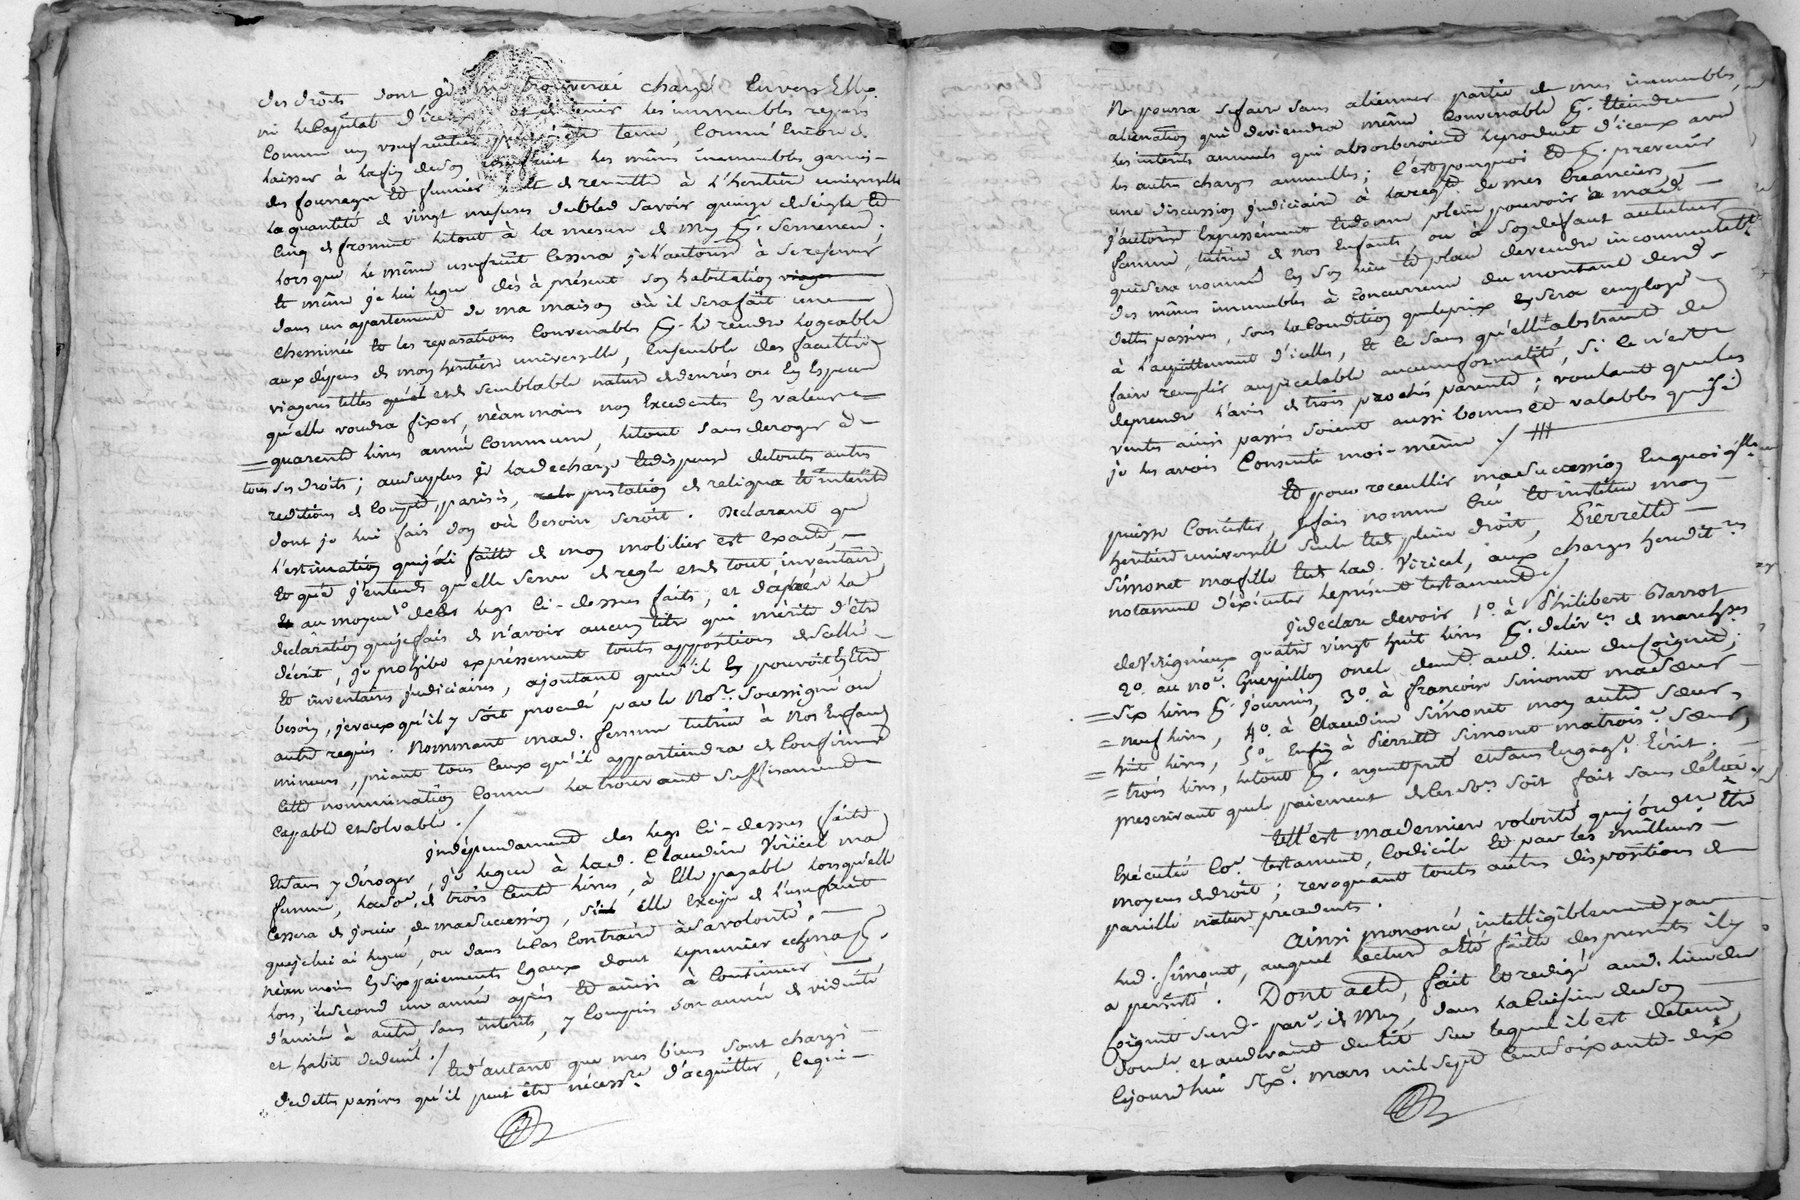 des droits dont je me trouverai chargé Envers Elle
ni le Capital d'iceux et de tenir les immeubles reparés
Comme un usufruitier peut être tenu, Comm' Encore de
laisser à la fin de son usufruit les mêmes immeubles garnis
de fourrage et fumier et de remettre à l'héritier universelle
la quantité de vingt mesures de bled savoir quinze de seigle et
cinq de froment le tout à la mesure de My p. semence.
lorsque le même usufruit Cessera je l'autorise à se réserver
et même je lui legue dès à present son habitation
dans un appartement de ma maison où il sera fait une
cheminée et les reparations Convenables p. le rendre logeable
aux dépens de mon héritière universelle, Ensemble des facultés
viageres telles qu'el et de semblable nature de denrées ou En Espece
qu'elle voudra fixer, néanmoins non Excedentes En valeur
quarente livres année Commune, le tout sans deroger à
tous ses droits; au surplus je la decharge et dispense de toutes autres
redditions de Compte, parisis, prestation de reliqua et intérêts
dont je lui fais don où besoin seroit. Declarant que
l'estimation que j'ai faitte de mon mobilier est exacte,
et que j'entends qu'elle serve de regle et de tout inventaire
au moyen des legs ci-dessus faits, et d'après la
declaration que je fais de n'avoir aucun titre qui mérite d'être
décrit, je prohibe expressement toutes appositions de scellé
et inventaires judiciaires, ajoutant que s'il pouvoit En Etre
besoin, je veux qu'il y soit procedé par le No.re soussigné ou
autre requis. Nommant mad. femme tutrice à Nos Enfans
mineurs, priant tous Ceux qu'il appartiendra de Confirmer
cette nomination Comme la trouvant suffisamment
capable et solvable./
jndépendament des legs ci-dessus faits
Et sans y déroger, je legue à lad. Claudine Viricel ma
femme, la so.e de trois Cents livres, à Elle payable lorsqu'elle
Cessera de jouir, de ma succession, elle de l'usufruit
que je lui ai legué, ou dans le Cas Contraire à sa volonté,
néanmoins En six paiements Egaux dont le premier echerra p.
lors, le second une année après et ainsi à Continuer
d'année à autre, sans intérêts, y Compris son année de viduité
et habit de deuil./
Et d'autant que mes biens sont chargés
de dettes passives qu'il peut être nécess.re d'acquitter, ce qui
Ne pourra se faire sans aliener partie de mes immeubles,
alienation qui deviendra même Convenable p. Eteindre
les intérêts annuels qui absorberoient le produit d'iceux avec
les autres charges annuelles; C'est pourquoi et p. prevenir
une discussion judiciaire à la req.te de mes Creanciers
j'autorise Expressément et donne plein pouvoir à mad.
femme, tutrice de nos Enfants ou à son defaut au tuteur
qui sera nommé En son lieu et place de vendre incommutabl.t
des mêmes immeubles à concurrence du montant desd.
dettes passives, sous la Condition que le prix En sera employé
à l'acquittement d'icelles, et ce sans qu'elle abstrainte de
faire remplir au prealable aucune formalité, si ce n'est
de prendre l'avis de trois proches parents; voulant que les
ventes ainsi passés soient aussi bonnes et valables que si
je les avois Consenti moi-même./
Et pour recueillir ma succession En quoi q'lle
puisse Consister, je fais nomme Créé et institue mon
héritiere universelle seule et de plein droit, Pierrette
Simonet ma fille et de lad. Viricel, aux charges heredit.res
notament d'exécuter le present testament./
je declare devoir 1.o à Philibert Barrot
de Virignieux quatre vingt huit livres p. delivr.ces de march.ses
2.o au no.e Guerguillon onel demt. aud. lieu du Coignet,
six livres p. journées, 3.o à françoise Simonet ma Sœur
neuf livres, 4.o à Claudine Simonet mon autre Sœur,
huit livres, 5.o Enfin à Pierrette Simonet ma trois.e Sœur,
trois livres, le tout p. argent preté et sans Engag.t Ecrit;
prescrivant que le paiement de ces so.es soit fait sans délai.
Tell' est ma derniere volonté que j'ordonne Etre
Exécutée Co.e testament, Codicile et par les meilleurs
moyens de droit; revoquant toutes autres dispositions de
pareille nature precedents.
Ainsi prononcé, intelligiblement par
led. Simonet, auquel lecture a été faitte des presents il y
a persisté. Dont acte, fait et redigé aud. lieu du
Coignet susd. par.se de My, dans la cuisine de son
domi.le et au devant du lit sur lequel il est detenu,
Cejourd'hui six.e mars mil sept Cent soixante-dix